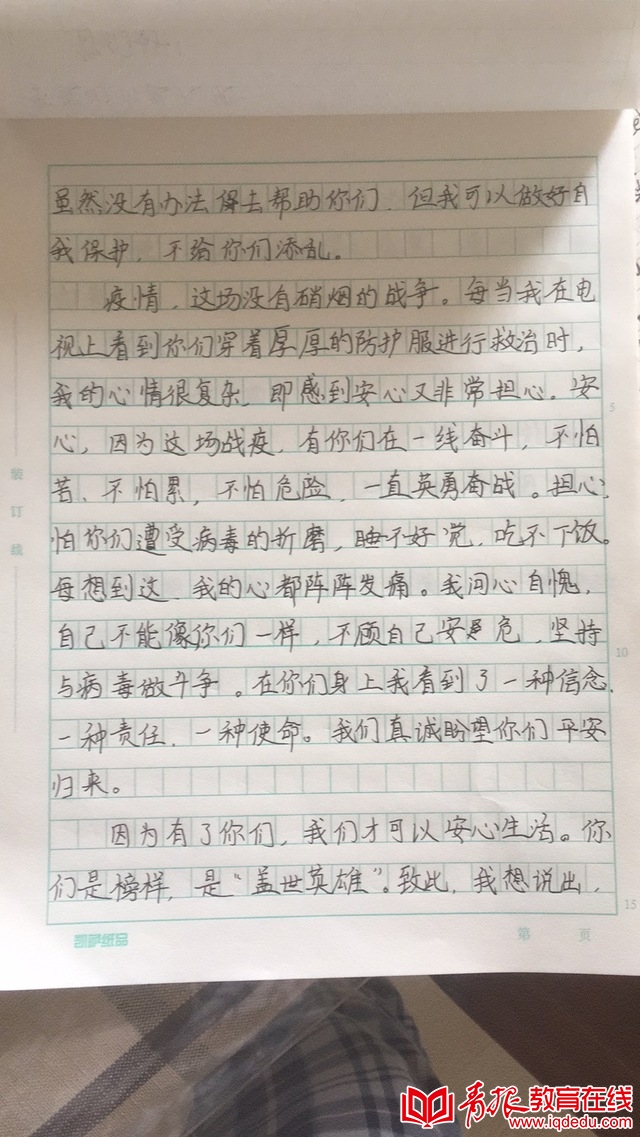 虽然没有办法去帮助你们,但我可以做好自
我保护,不给你们添乱。
疫情,这场没有硝烟的战争。每当我在电
视上看到你们穿着厚厚的防护服进行救治时,
我的心情很复杂,即感到安心又非常担心。安
心,因为这场战疫,有你们在一线奋斗,不怕
苦、不怕累,不怕危险,一直英勇奋战。担心,
怕你们遭受病毒的折磨,睡不好觉,吃不下饭。
每想到这,我的心都阵阵发痛。我问心自愧,
自己不能像你们一样,不顾自己安危,坚持
与病毒做斗争。在你们身上我看到了一种信念,
一种责任,一种使命。我们真诚盼望你们平安
归来。
因为有了你们,我们才可以安心生活。你
们是榜样,是“盖世英雄”。致此,我想说出,
装
订
线
5
10
15
凯萨纸品
第 页
青报教育在线
www.iqdedu.com